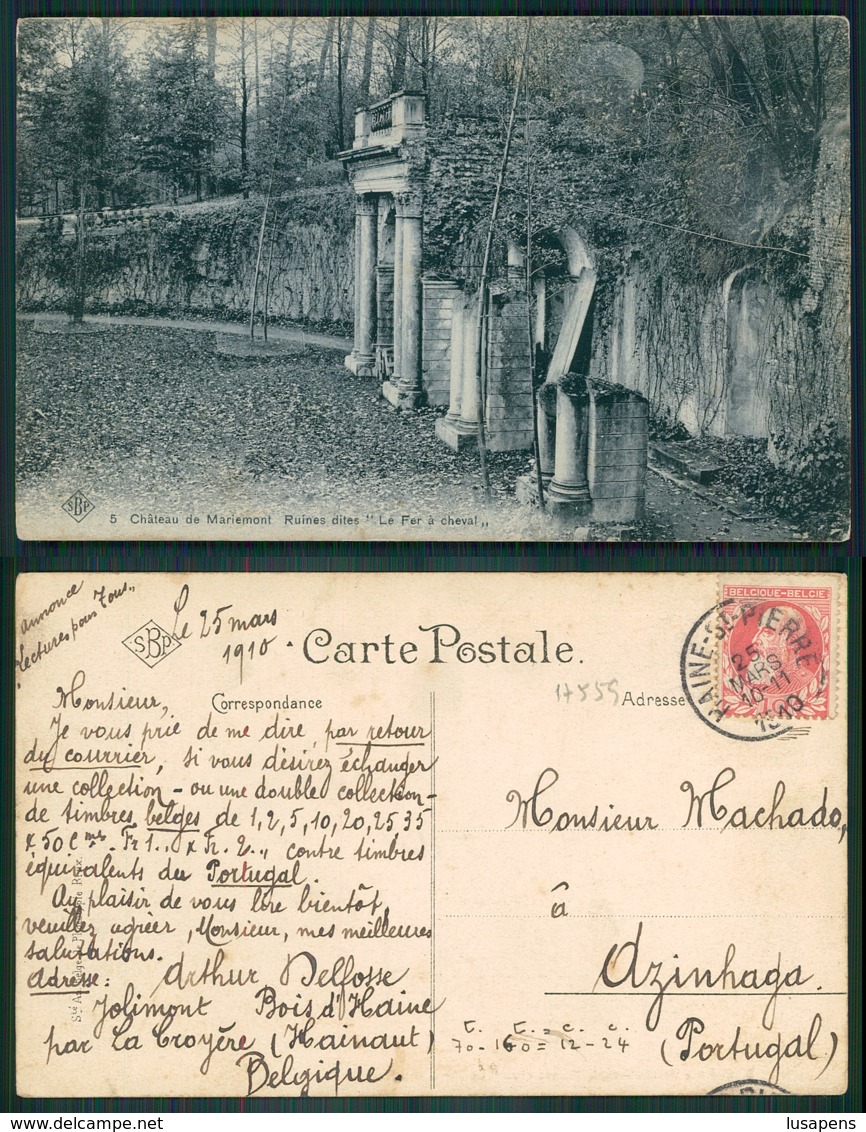 SBP
5 Château de Mariemont Ruines dites "Le Fer à cheval„
annonce
"Lectures pour Tous„
SBP
Le 25 mars
1910
Carte Postale.
BELGIQUE-BELGIË
HAINE-ST-PIERRE
25
MARS
10-11
1910
17559
Correspondance
Adresse
Monsieur,
Je vous prie de me dire, par retour
du courrier, si vous désirez échanger
une collection - ou une double collection -
de timbres belges de 1, 2, 5, 10, 20, 25 35
x 50 Cmes. Fr 1.„ x Fr. 2.„ contre timbres
équivalents du Portugal.
Au plaisir de vous lire bientôt,
veuillez agréer, Monsieur, mes meilleures
salutations.
Adresse: Arthur Delfosse
Jolimont Bois d'Haine
par La Croyère (Hainaut)
Belgique.
Monsieur Machado,
à
Azinhaga.
(Portugal)
t. t. = c. c.
70-160 = 12-24
lusapens